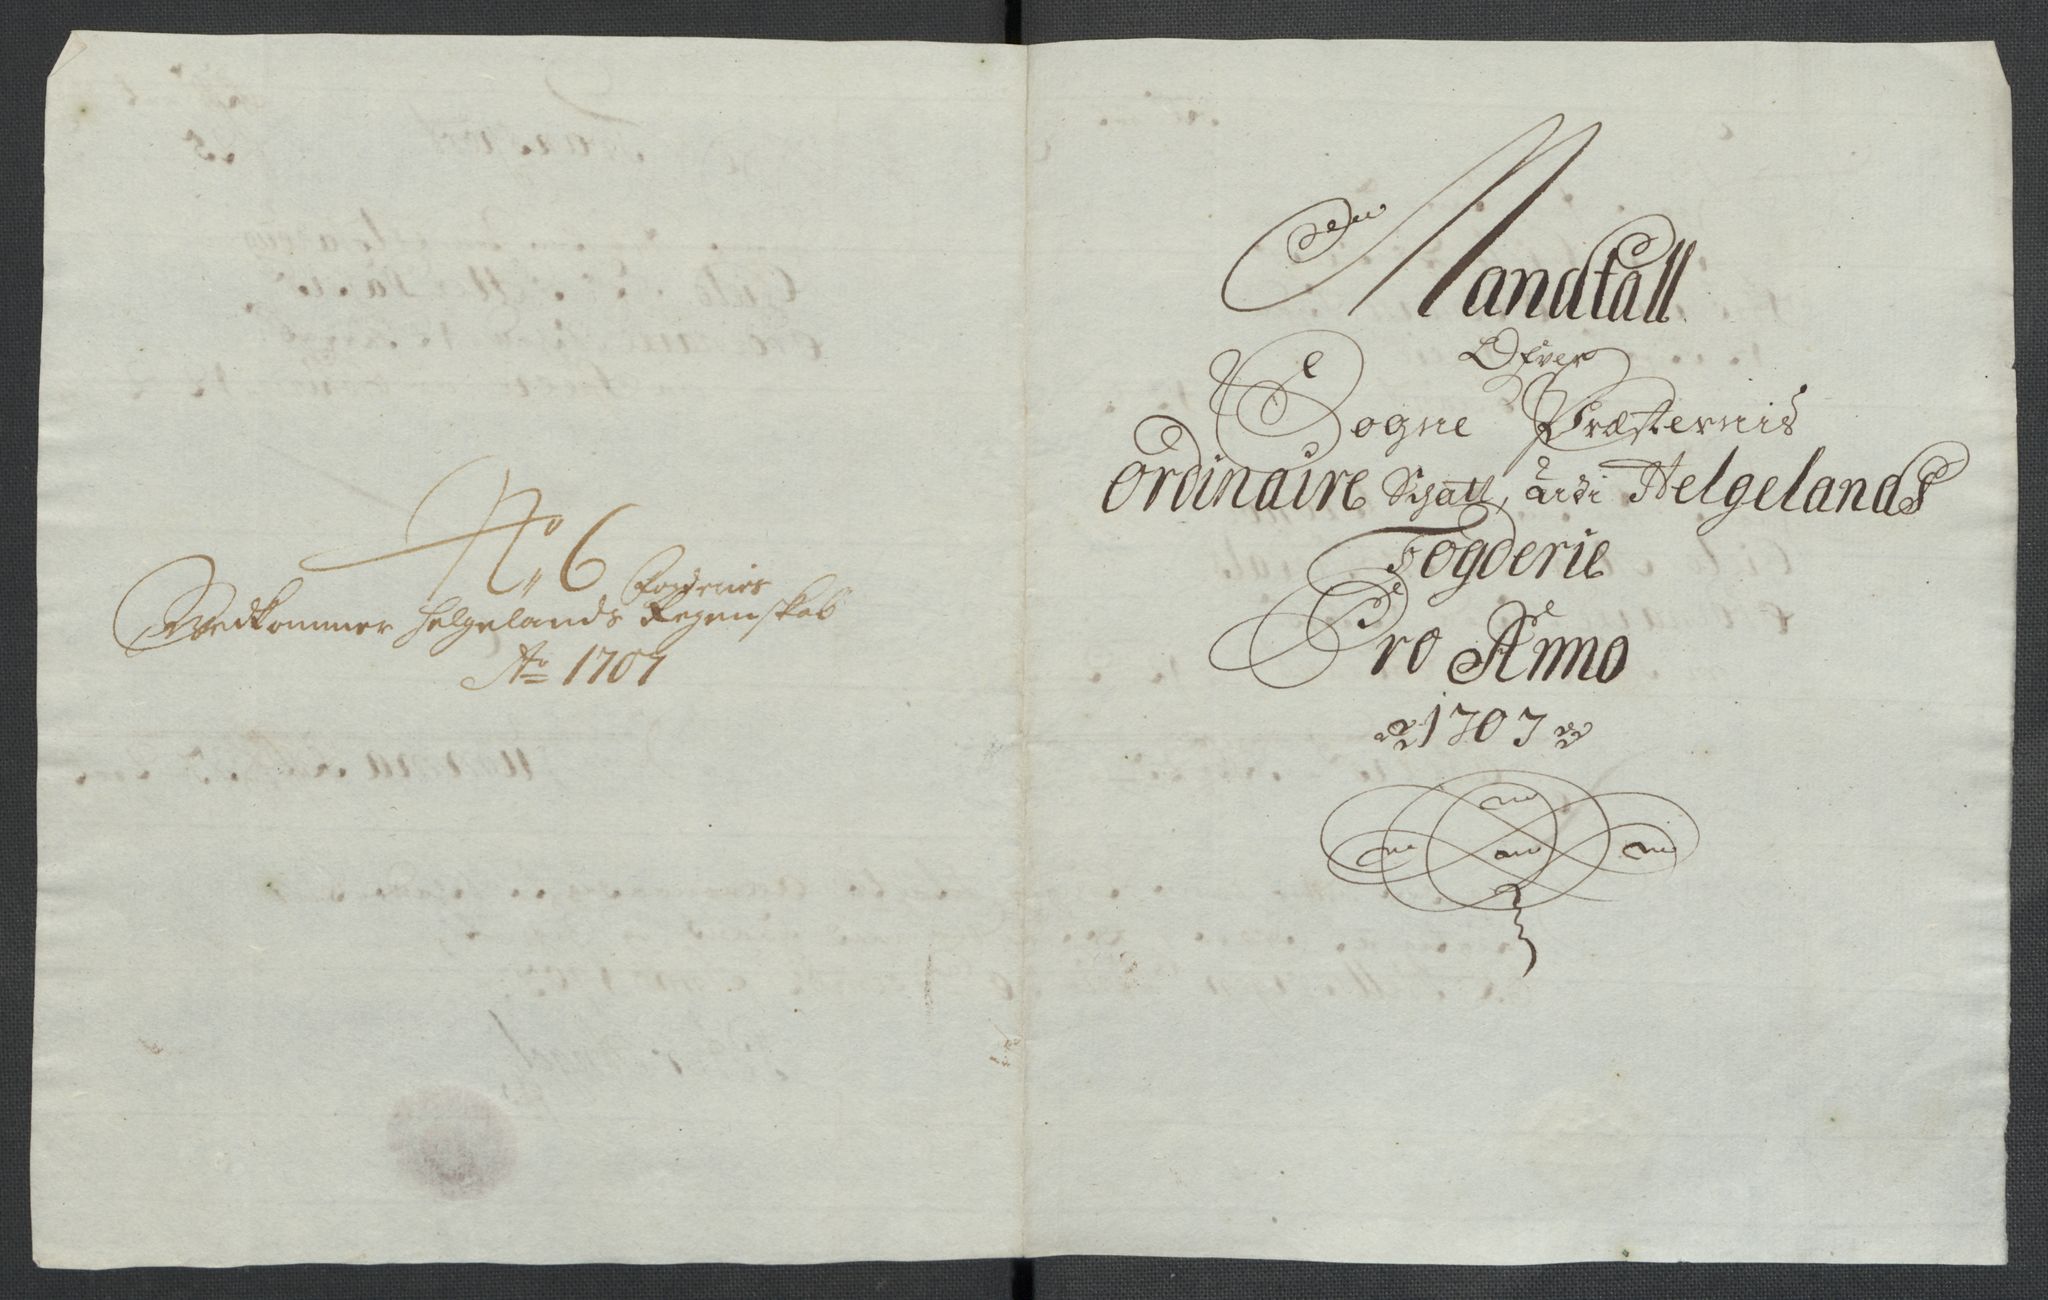 N: 6
Vedkommer Helgelands Fogderies Regenskab
Ao 1707
Mandtall
Ofver
Sogne Præsternis
Ordinaire Schatt, udi Helgelands
Fogderie
Pro Anno
1707